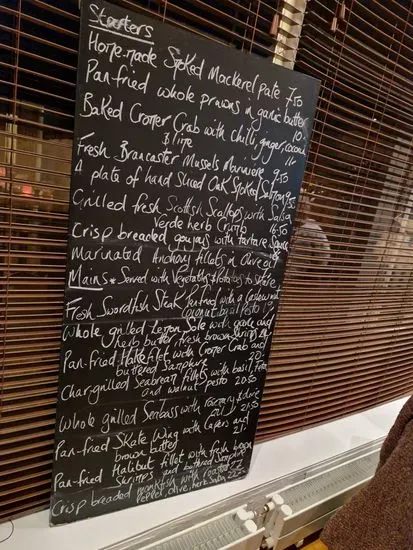 Starters
Home-made Smoked Mackerel pate 7.50
Pan-fried whole prawns in garlic butter
10.
Baked Cromer Crab with chilli, ginger, coconut
& lime 11.
Fresh Brancaster Mussels Mariniere 9.50
A plate of hand sliced Oak Smoked Salmon
Grilled fresh Scottish Scallops with Salsa
Verde herb crumb
Crisp breaded goujons with tartare Sauce
Marinated Anchovy fillets in Olive oil
Mains * Served with Vegetables & Potatoes to share
Fresh Swordfish Steak with a Cashew nut
Coconut basil Pesto
Whole grilled Lemon Sole with garlic and
herb butter fresh brown Shrimps
Pan-fried Hake fillet with Cromer Crab and
buttered Samphire 20.
Char-grilled Seabream fillets with basil, feta
and walnut pesto 20.50
Whole grilled Seabass with rosemary & olive
oil 21.50
Pan-fried Skate Wing with Capers and
brown butter
Pan-fried Halibut fillet with fresh brown
Shrimps and buttered Samphire
Crisp breaded monkfish with roasted
Pepper, olive, herb Salsa